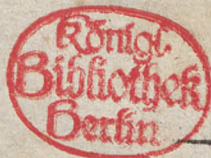 Königl.
Bibliothek
Berlin